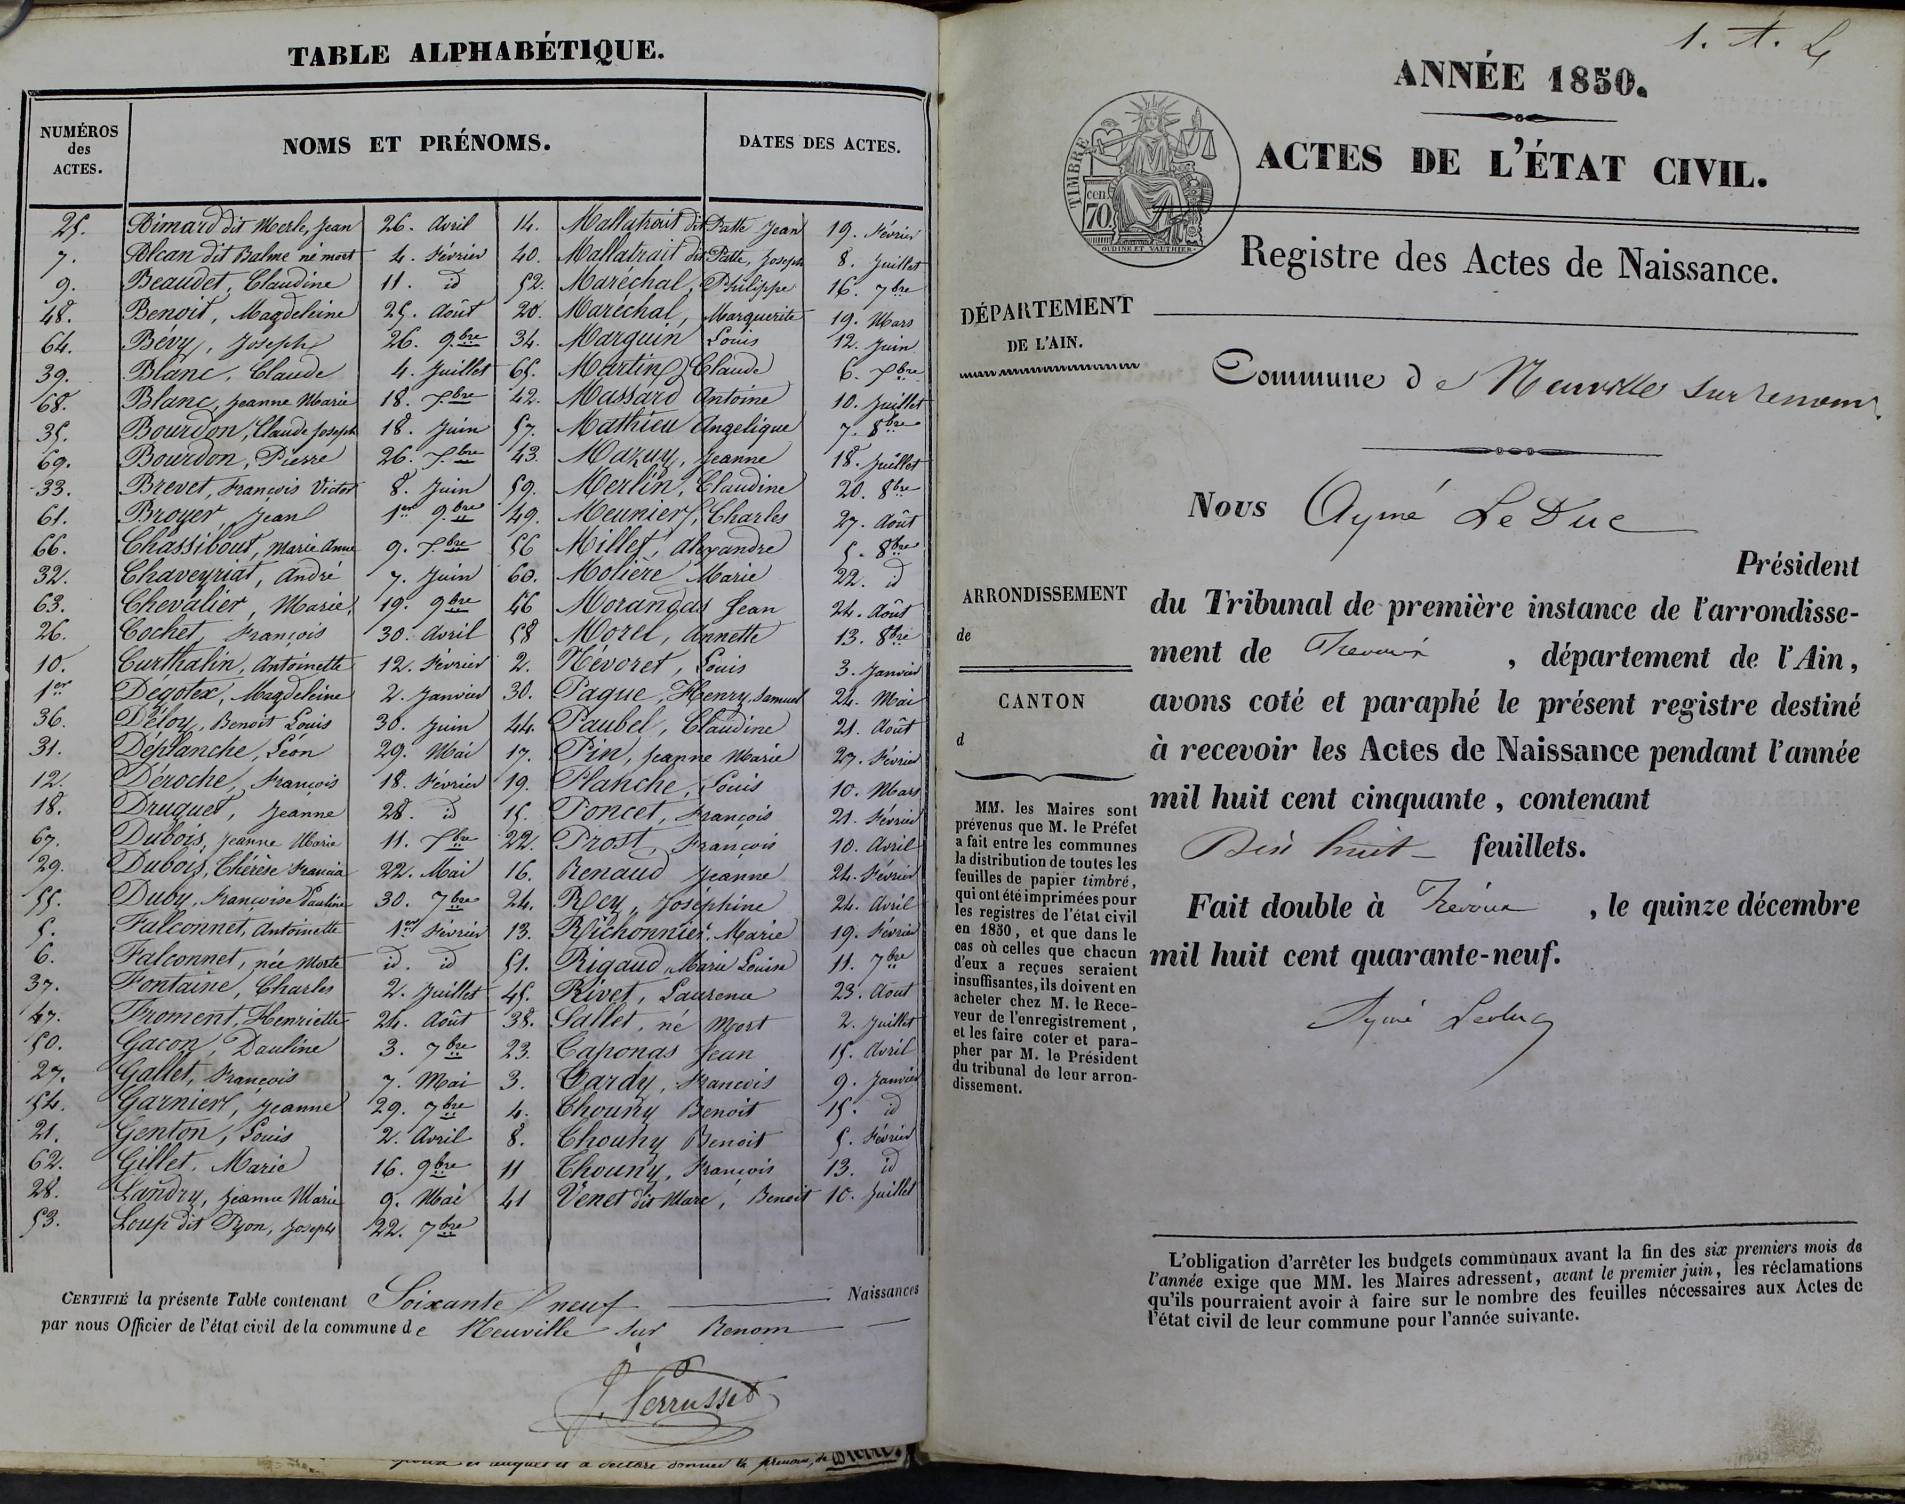 TABLE ALPHABÉTIQUE.
NUMÉROS
des
ACTES.
NOMS ET PRÉNOMS.
DATES DES ACTES.
25. Aimard dit Merle, Jean 26. Avril 14. Mallatrait dit Patte Jean 19. Février
7. Alcan dit Balme né mort 4. Février 40. Mallatrait dit Patte, Joseph 8. Juillet
9. Beaudet, Claudine 11. id 52. Maréchal, Philippe 16. 7bre
48. Benoit, Magdeleine 25. Août 20. Maréchal, Marguerite 19. Mars
64. Bévy, Joseph 26. 9bre 34. Marguin Louis 12. Juin
39. Blanc, Claude 4. Juillet 65. Martin, Claude 6. Xbre
68. Blanc, Jeanne Marie 18. Xbre 42. Massard Antoine 10. Juillet
35. Bourdon, Claude Joseph 18. Juin 57. Mathieu Angelique 7. 8bre
69. Bourdon, Pierre 26. Xbre 43. Mazuy, Jeanne 18. Juillet
33. Brevet, François Victor 8. Juin 59. Merlin, Claudine 20. 8bre
61. Broyer Jean 1er 9bre 49. Meunier, Charles 27. Août
66. Chassibout, Marie Anne 9. Xbre 56 Millet, Alexandre 5. 8bre
32. Chaveyriat, André 7. Juin 60. Molière Marie 22. id
63. Chevalier, Marie 19. 9bre 46 Morandas Jean 24. Août
26. Cochet, François 30. Avril 58 Morel, Annette 13. 8bre
10. Curthalin, Antoinette 12. Février 2. Névoret, Louis 3. Janvier
1er Dégotex, Magdeleine 2. Janvier 30. Pague, Henry Samuel 24. Mai
36. Déloy, Benoit Louis 30. Juin 44. Paubel, Claudine 21. Août
31. Déplanche, Léon 29. Mai 17. Pin, Jeanne Marie 27. Février
12. Déroche, François 18. Février 19. Planche, Louis 10. Mars
18. Druguet, Jeanne 28. id 15. Poncet, François 21. Février
67. Dubois, Jeanne Marie 11. Xbre 22. Prost, François 10. Avril
29. Dubois, Thérèse Francia 22. Mai 16. Renaud Jeanne 24. Février
55. Duby, Françoise Pauline 30. 7bre 24. Rey, Joséphine 24. Avril
5. Falconnet, Antoinette 1er Février 13. Richonnier, Marie 19. Février
6. Falconnet, née Morte id. id 51. Rigaud, Marie Louise 11. 7bre
37. Fontaine, Charles 2. Juillet 45. Rivet, Laurence 23. Août
47. Froment, Henriette 24. Août 38. Sallet, né Mort 2. Juillet
50. Gacon, Pauline 3. 7bre 23. Taponas Jean 15. Avril
27. Gallet, François 7. Mai 3. Tardy, François 9. Janvier
54. Garnier, Jeanne 29. 7bre 4. Thouny Benoit 15. id
21. Genton, Louis 2. Avril 8. Thouny Benoit 5. Février
62. Gillet, Marie 16. 9bre 11 Thouny, François 13. id
28. Landry, Jeanne Marie 9. Mai 41 Venet dit Marc, Benoit 10. Juillet
53. Loup dit Pyon, Joseph 22. 7bre
CERTIFIÉ la présente Table contenant Soixante neuf Naissances
par nous Officier de l'état civil de la commune de Neuville sur Renom
J. Perrusset
1. A. L
ANNÉE 1850.
ACTES DE L'ÉTAT CIVIL.
TIMBRE
cen.
70
OUDINE ET VAUTHIER
Registre des Actes de Naissance.
DÉPARTEMENT
DE L'AIN.
Commune de Neuville sur renom.
Nous Aymé Le Duc
Président
ARRONDISSEMENT
de
CANTON
d
du Tribunal de première instance de l'arrondisse-
ment de Trevoux , département de l'Ain,
avons coté et paraphé le présent registre destiné
à recevoir les Actes de Naissance pendant l'année
mil huit cent cinquante, contenant
Dix huit feuillets.
Fait double à Trévoux , le quinze décembre
mil huit cent quarante-neuf.
Aymé Leduc
MM. les Maires sont
prévenus que M. le Préfet
a fait entre les communes
la distribution de toutes les
feuilles de papier timbré,
qui ont été imprimées pour
les registres de l'état civil
en 1850, et que dans le
cas où celles que chacun
d'eux a reçues seraient
insuffisantes, ils doivent en
acheter chez M. le Rece-
veur de l'enregistrement,
et les faire coter et para-
pher par M. le Président
du tribunal de leur arron-
dissement.
L'obligation d'arrêter les budgets communaux avant la fin des six premiers mois de
l'année exige que MM. les Maires adressent, avant le premier juin, les réclamations
qu'ils pourraient avoir à faire sur le nombre des feuilles nécessaires aux Actes de
l'état civil de leur commune pour l'année suivante.